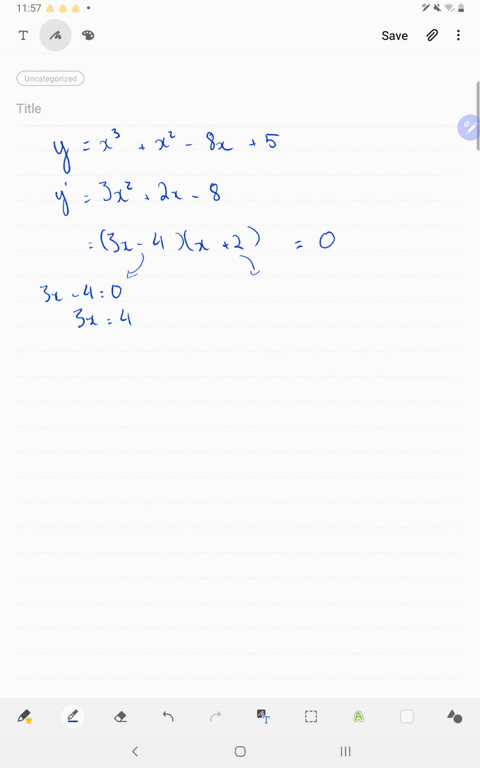 11:57
T
Save
Uncategorized
Title
y = x³ + x² - 8x + 5
y' = 3x² + 2x - 8
= (3x - 4)(x + 2) = 0
3x - 4 = 0
3x = 4
T
A